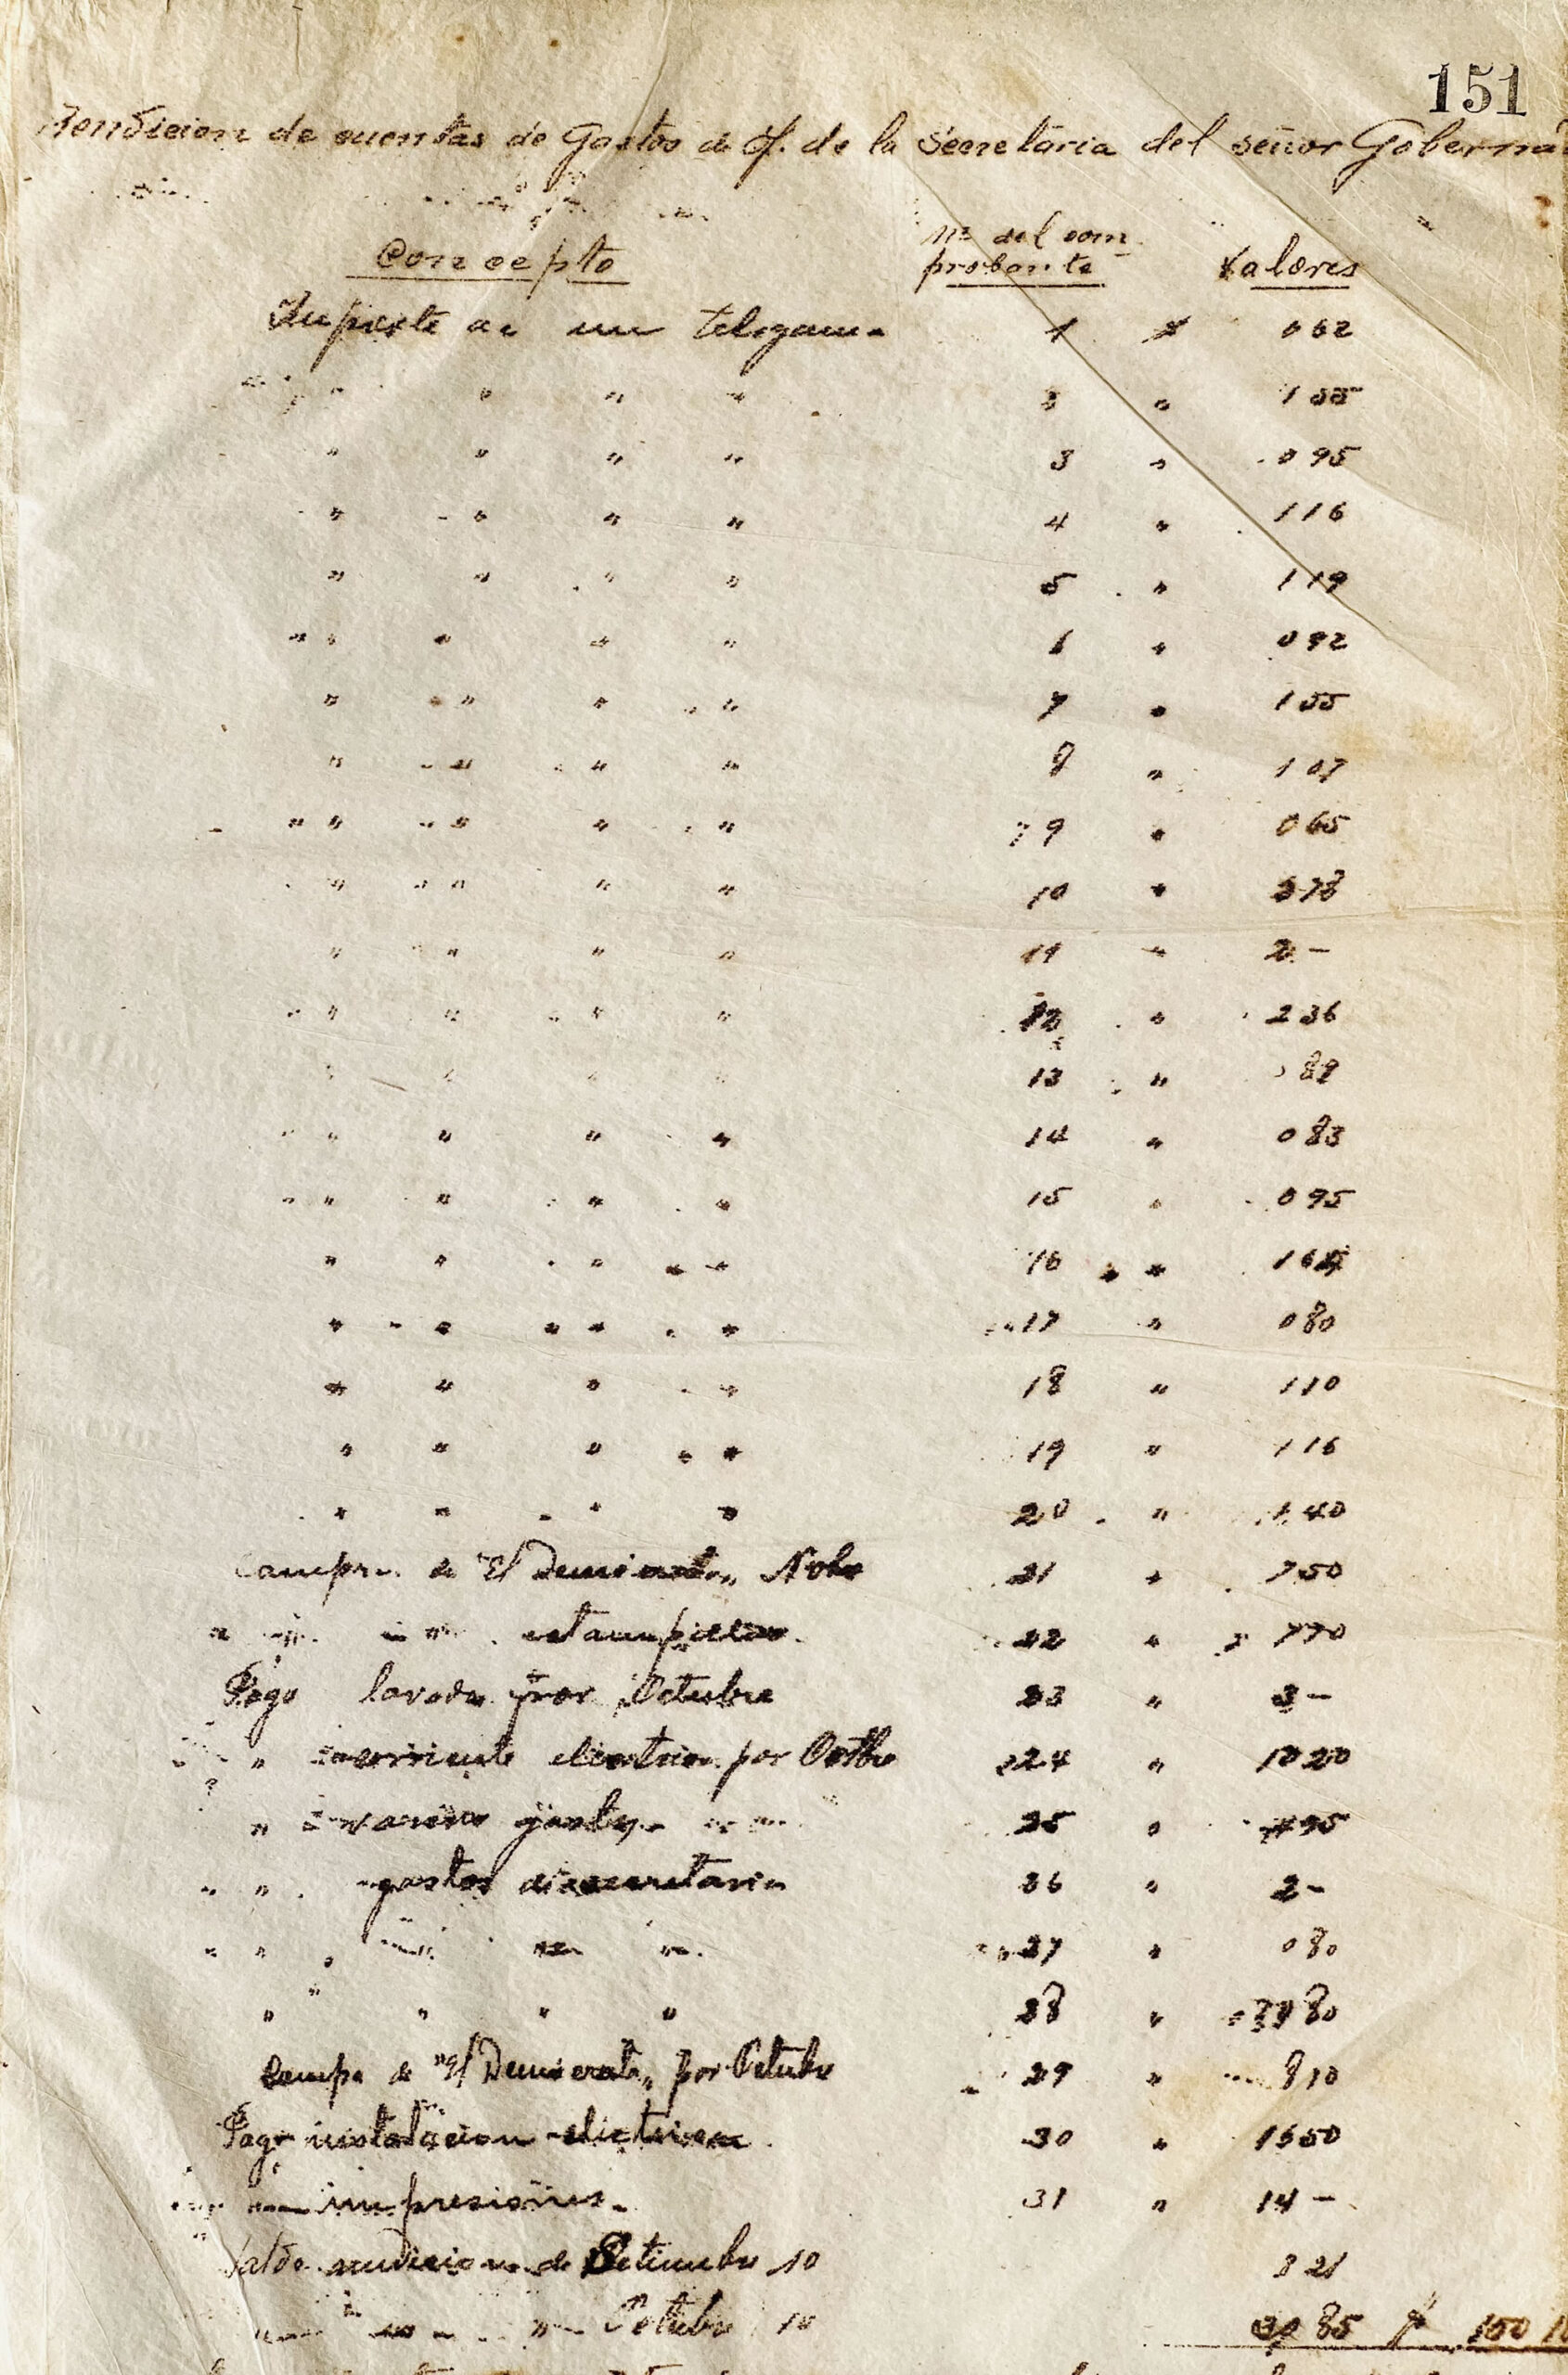 151
Rendicion de cuentas de Gastos de of. de la Secretaria del señor Goberna
Concepto Nº del com
probante Valores
Importe de un telegrama 1 $ 0 62
" " " " 2 " 1 55
" " " " 3 " 0 95
" " " " 4 " 1 16
" " " " 5 " 1 19
" " " " 6 " 0 92
" " " " 7 " 1 55
" " " " 8 " 1 07
" " " " 9 " 0 65
" " " " 10 " 78
" " " " 11 " 2 -
" " " " 12 " 2 36
" " " " 13 " 89
" " " " 14 " 0 83
" " " " 15 " 0 95
" " " " 16 "
" " " " 17 " 0 80
" " " " 18 " 1 10
" " " " 19 " 1 16
" " " " 20 " 1 40
Compra de "El Demócrata" Nobre 21 " 7 50
" estampillas 22 " 7 70
Pago lavado por Octubre 23 " 3 -
" corriente electrica por Octbre 24 " 10 20
" varios gastos 25 " 95
" " gastos de secretaria 26 " 2 -
" " " " " 27 " 0 80
" " " " " 28 " 80
Compra de "El Demócrata" por Octubre 29 " 8 10
Pago instalacion electrica 30 " 15 50
" impresiones 31 " 14 -
Saldo rendicion de Setiembre 10 3 21
" " " Octubre 10 85 $ 150